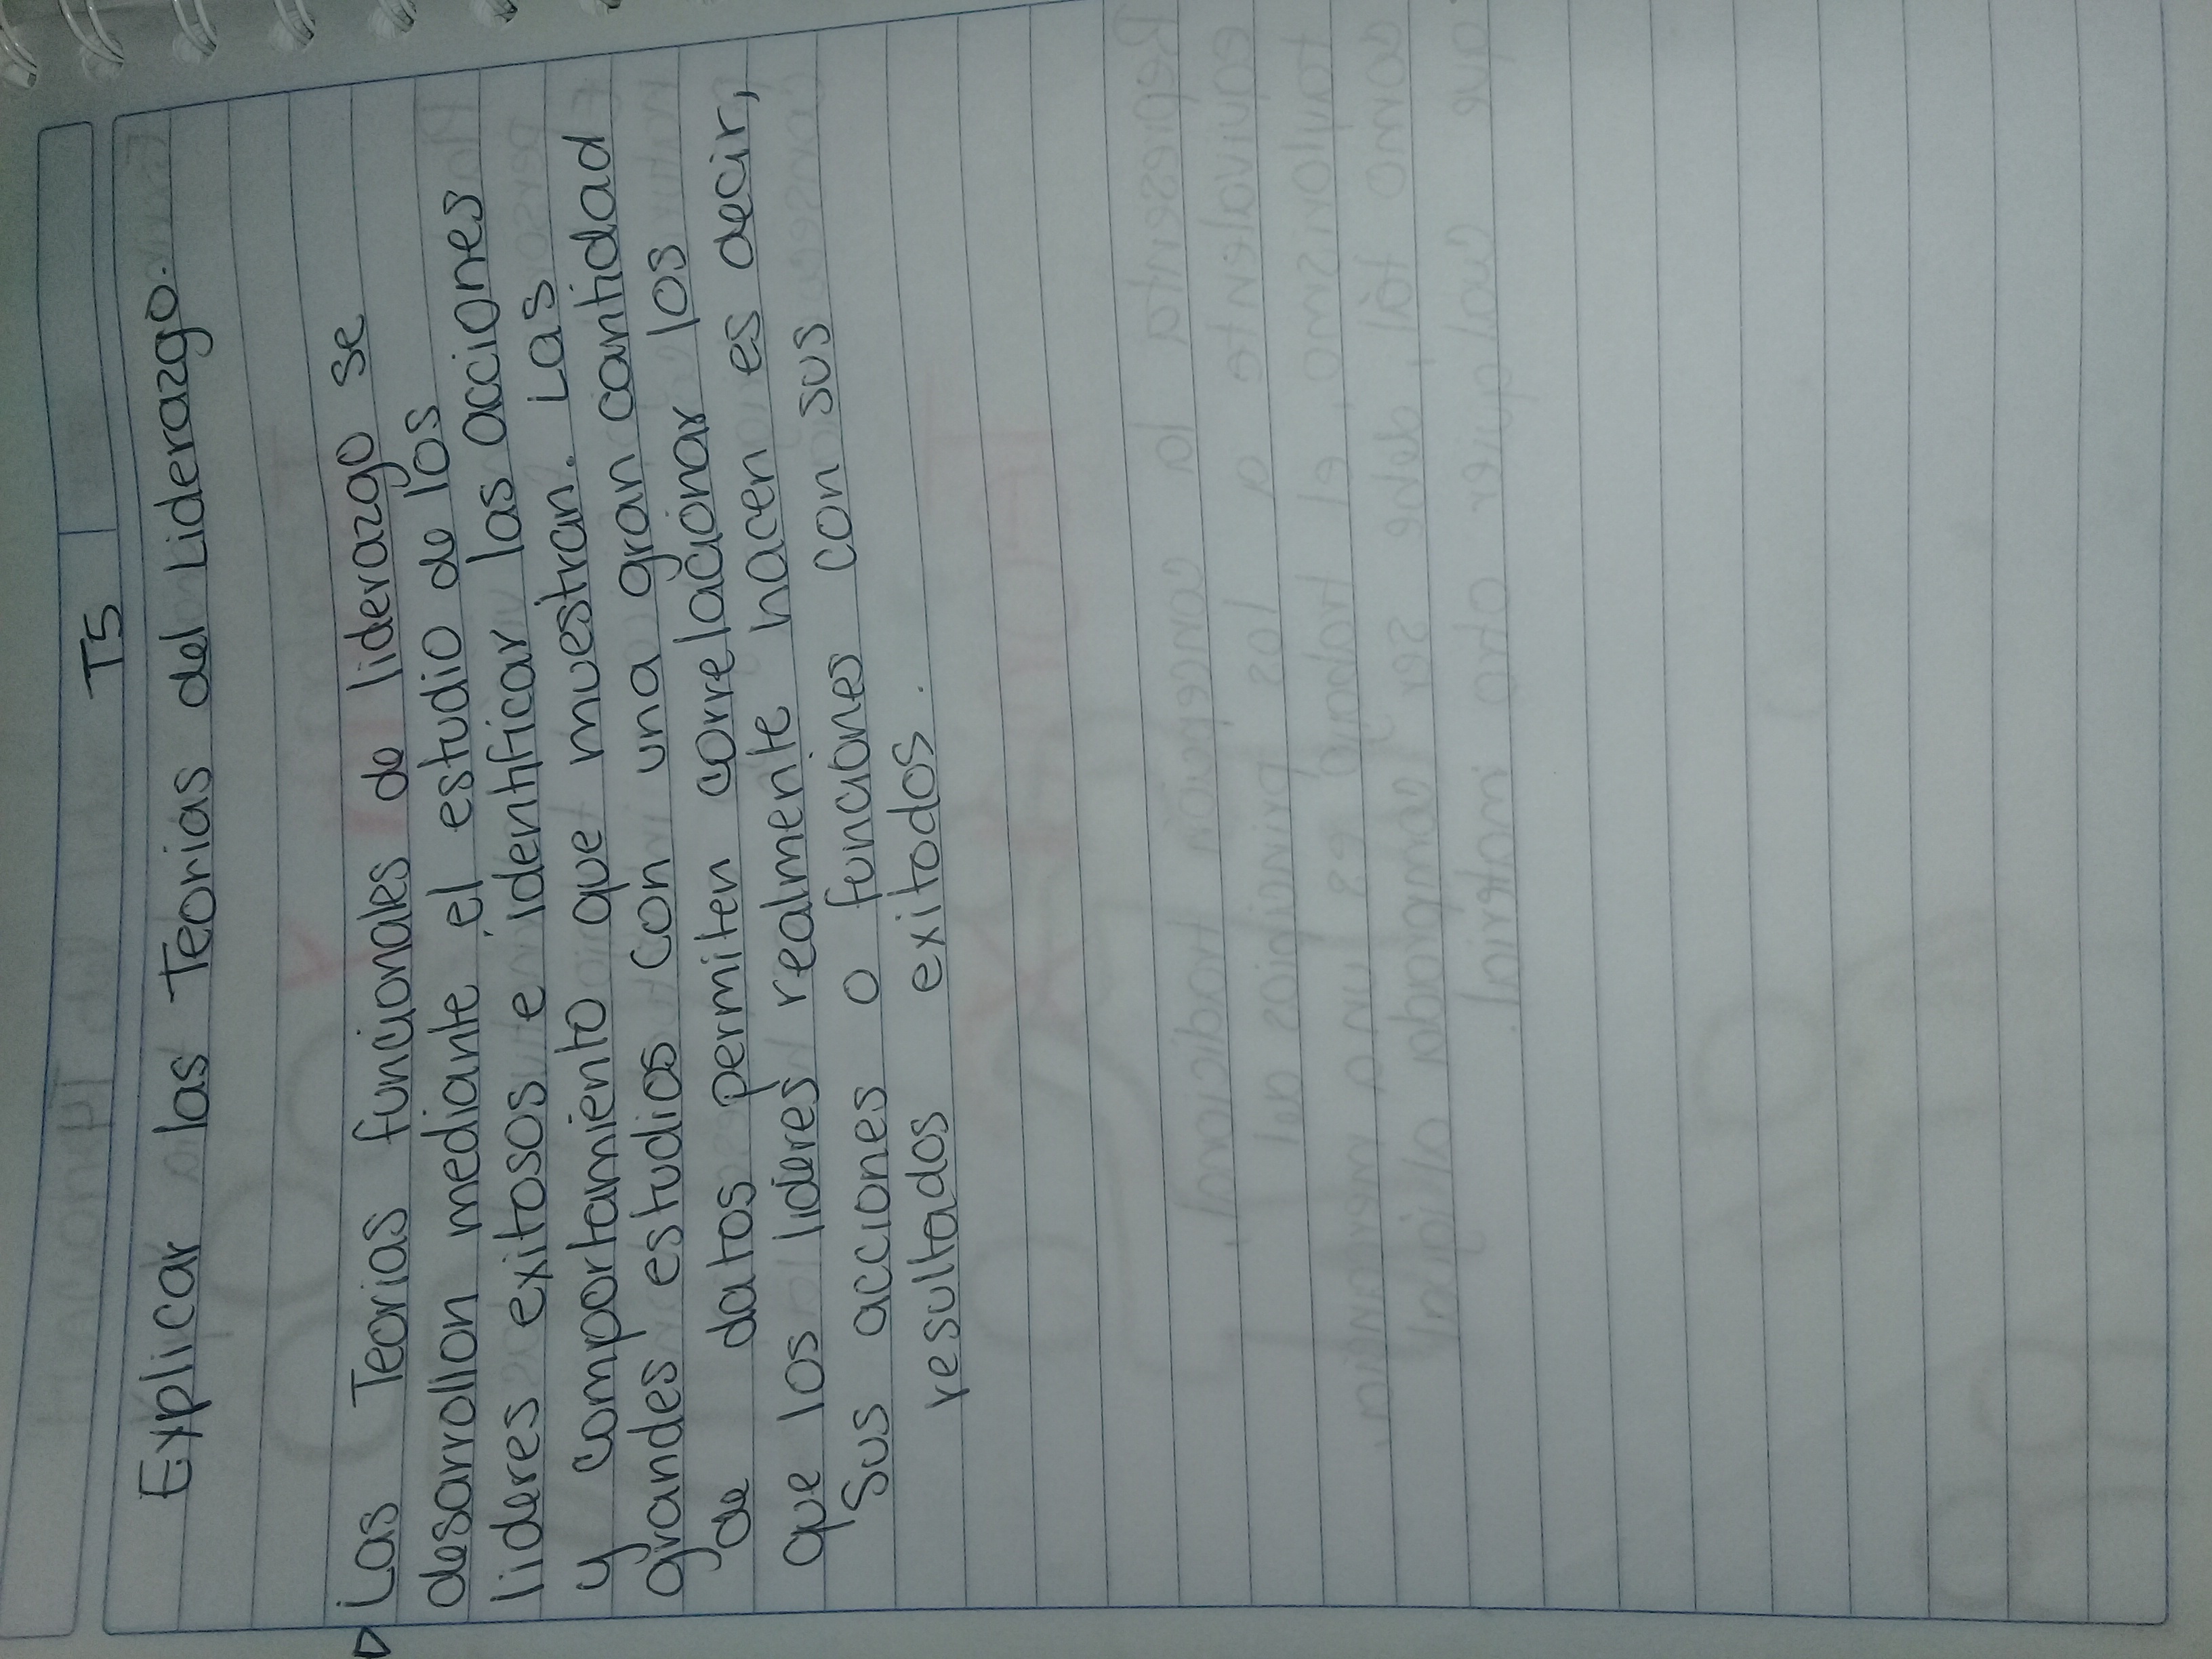 T5
Explicar las Teorias del Liderazgo.
Las Teorias funcionales de liderazgo se
desarrollan mediante el estudio de los
lideres exitosos e identificar las acciones
y comportamiento que muestran. Las
grandes estudios con una gran cantidad
de datos permiten correlacionar los
que los lideres realmente hacen es decir,
Sus acciones o funciones con sus
resultados exitodos.